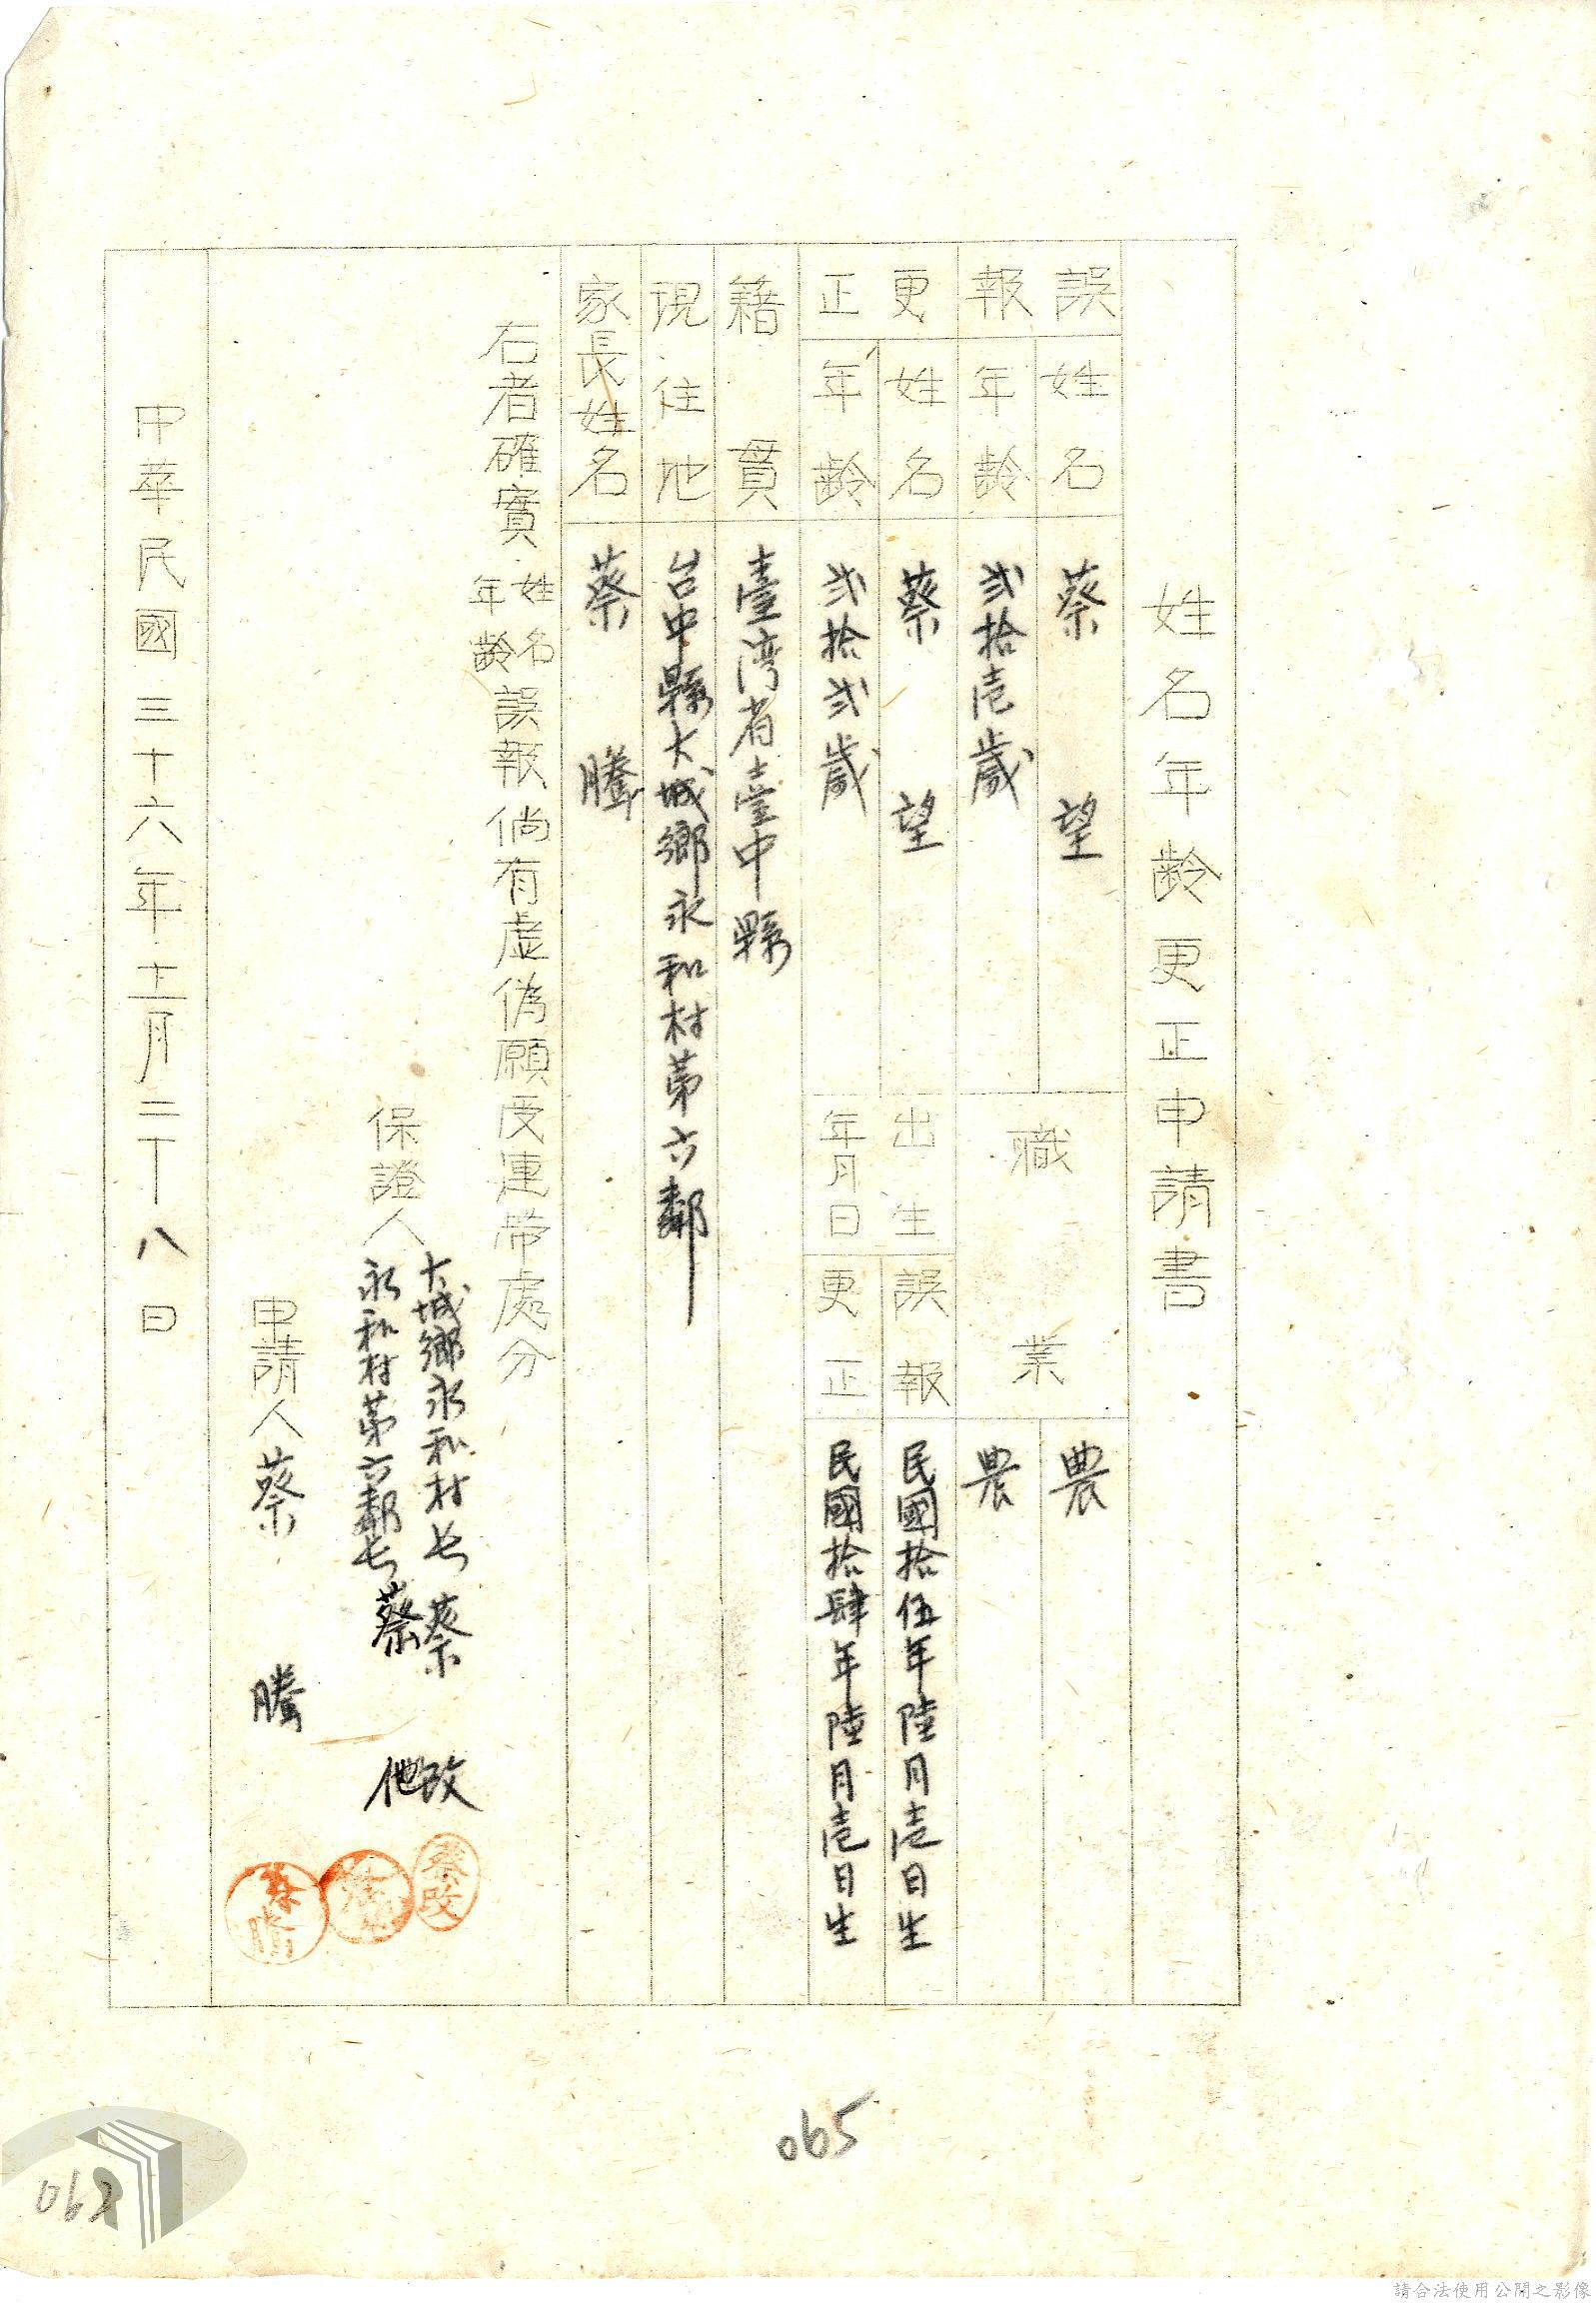 姓名年齡更正申請書
誤報 姓名 蔡望 職業 農
年齡 弐拾壱歲 農
更正 姓名 蔡望 出生年月日 誤報 民國拾伍年陸月壱日生
年齡 弐拾弐歲 更正 民國拾肆年陸月壱日生
籍貫 臺湾省臺中縣
現住地 台中縣大城鄉永和村第六鄰
家長姓名 蔡騰
右者確實姓名年齡誤報倘有虛偽願受連帶處分
保證人 大城鄉永和村長 蔡改
永和村第六鄰長 蔡他
申請人 蔡騰
蔡改
蔡騰
中華民國三十六年十二月二十八日
065
請合法使用公開之影像